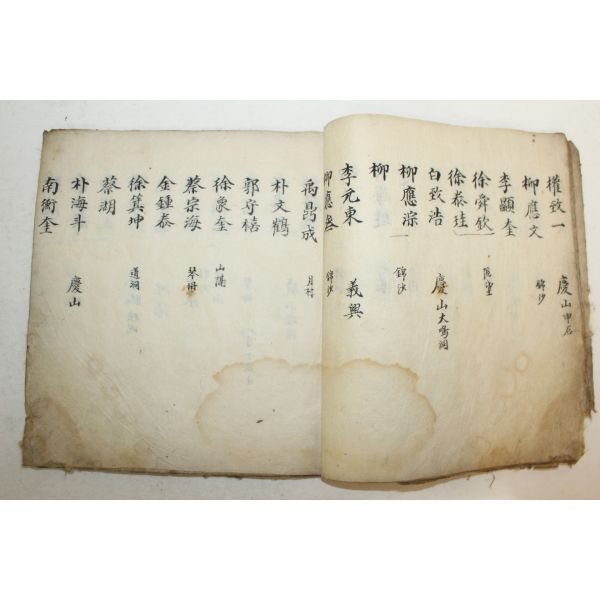 權致一 慶山
柳應文 錦沙
李顯奎
徐舜欽
徐泰珪
白致浩 慶山大鳴洞
柳應淙 錦沙
柳
李元東 義興
柳應 錦沙
禹昌成 月村
朴文鶴
郭守禧
徐象奎 山陽
蔡宗海 琴川
金鍾泰
徐箕坤 道洞
蔡湖
朴海斗 慶山
南衡奎